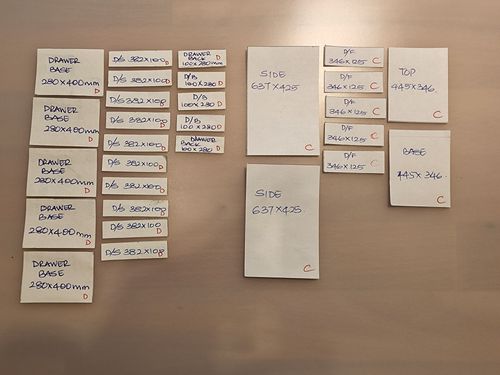 DRAWER
BASE
280X400mm
D
DRAWER
BASE
280X400mm
D
DRAWER
BASE
280X400mm
D
DRAWER
BASE
280X400mm
D
DRAWER
BASE
280X400mm
D
D/S 382X100
D
D/S 382X100
D
D/S 382X100
D/S 382X100
D
D/S 382X100
D
D/S 382X100
D
D/S 382X100
D
D/S 382X100
D
D/S 382X100
D
D/S 382X100
DRAWER
BACK D
100X280mm
D/B
100X280 D
100X280 D
D/B
100X280 D
DRAWER
BACK
100X280 D
SIDE
637X425
C
SIDE
637X425
C
D/F
346X125 C
D/F
346X125 C
D/F
346X125 C
D/F
346X125 C
D/F
346X125 C
TOP
445X346.
C
BASE
445X346.
C